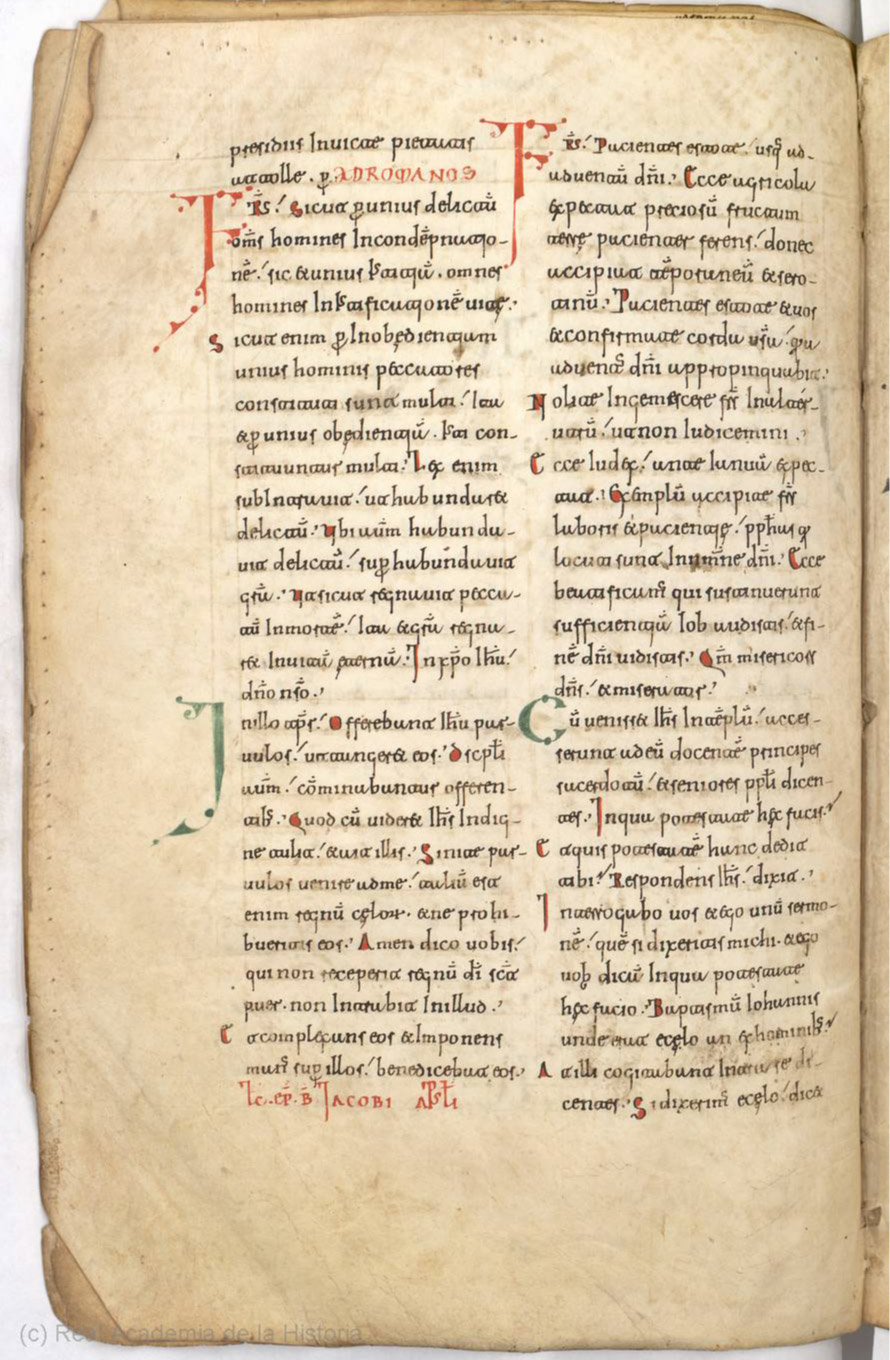 presidiis Inuicte pietatis
attolle. ꝑ. AD ROMANOS
Frs̄. Sicut ꝑ unius delictū
oms̄ homines Incondēpnatjo-
nē. sic & unius Īstitjā. omnes
homines In Īstificatjonē uitę.
Sicut enim ꝑ Inobędientjam
unius hominis peccatores
constituti sunt multi. Ita
& ꝑ unius obędientjā. Īsti con-
stituuntur multi. Lex enim
subIntrauit. ut habundaret
delictū. Ubi aūm habunda-
uit delictū. suꝑhabundauit
gr̄a. Ut sicut regnauit pecca-
tū In mortē. Ita & gr̄a regna-
ret In uitā ęternā. In xp̄o Ihū.
dn̄o nr̄o.
In illo tp̄r. Offerebant Ihū par-
uulos. ut tangeret eos. Discpl̄i
aūm. cōminabuntur offeren-
tibs̄. Quod cū uideret Ihs̄ Indig-
ne tulit. & ait illis. Sinite par-
uulos uenire ad me. taliū est
enim regnū cęlor̄. & ne prohi-
bueritis eos. Amen dico uobis.
qui non receperit regnū dī sc̄t
puer. non Intrabit In illud.
Et complexans eos & Imponens
man̄s suꝑ illos. benedicebat eos.
Lc. ep̄. b̄ IACOBI APSTL̄I
Frs̄. Patientes estote. usq̄ ad-
aduentū dn̄i. Ecce agricola
expectat preciosū fructum
terre patienter ferens. donec
accipiat tēporaneū & sero-
tinū. Patientes estote & uos
& confirmate corda ur̄a. qa
aduent̄s dn̄i appropinquabit.
Nolite Ingemescere frs̄ Inalter-
utrū. ut non Iudicemini.
Ecce Iudex. ante Ianuā expec-
tat. Exemplū accipite frs̄
laboris & patientję. pph̄as q
locuti sunt In nm̄ne dn̄i. Ecce
beatificam̄s qui sustinuerunt
sufficientjā Iob audistis. & fi-
nē dn̄i uidistis. Qm̄ misericors
dn̄s. & miserator.
Cū uenisset Ihs̄ In tēplū. acces-
serunt ad eū docentē principes
sacerdotū. & seniores ppl̄i dicen-
tes. In qua potestate hęc facis.
Et quis potestatē hanc dedit
tibi. Respondens Ihs̄. dixit.
Interrogabo uos & ego unū sermo-
nē. quē si dixeritis michi. & ego
uob̄ dicā In qua potestate
hęc facio. Baptismū Iohannis
unde erat e cęlo an ex hominibs̄.
At illi cogitabant Intra se di-
centes. Si dixerim̄s e cęlo. dicet